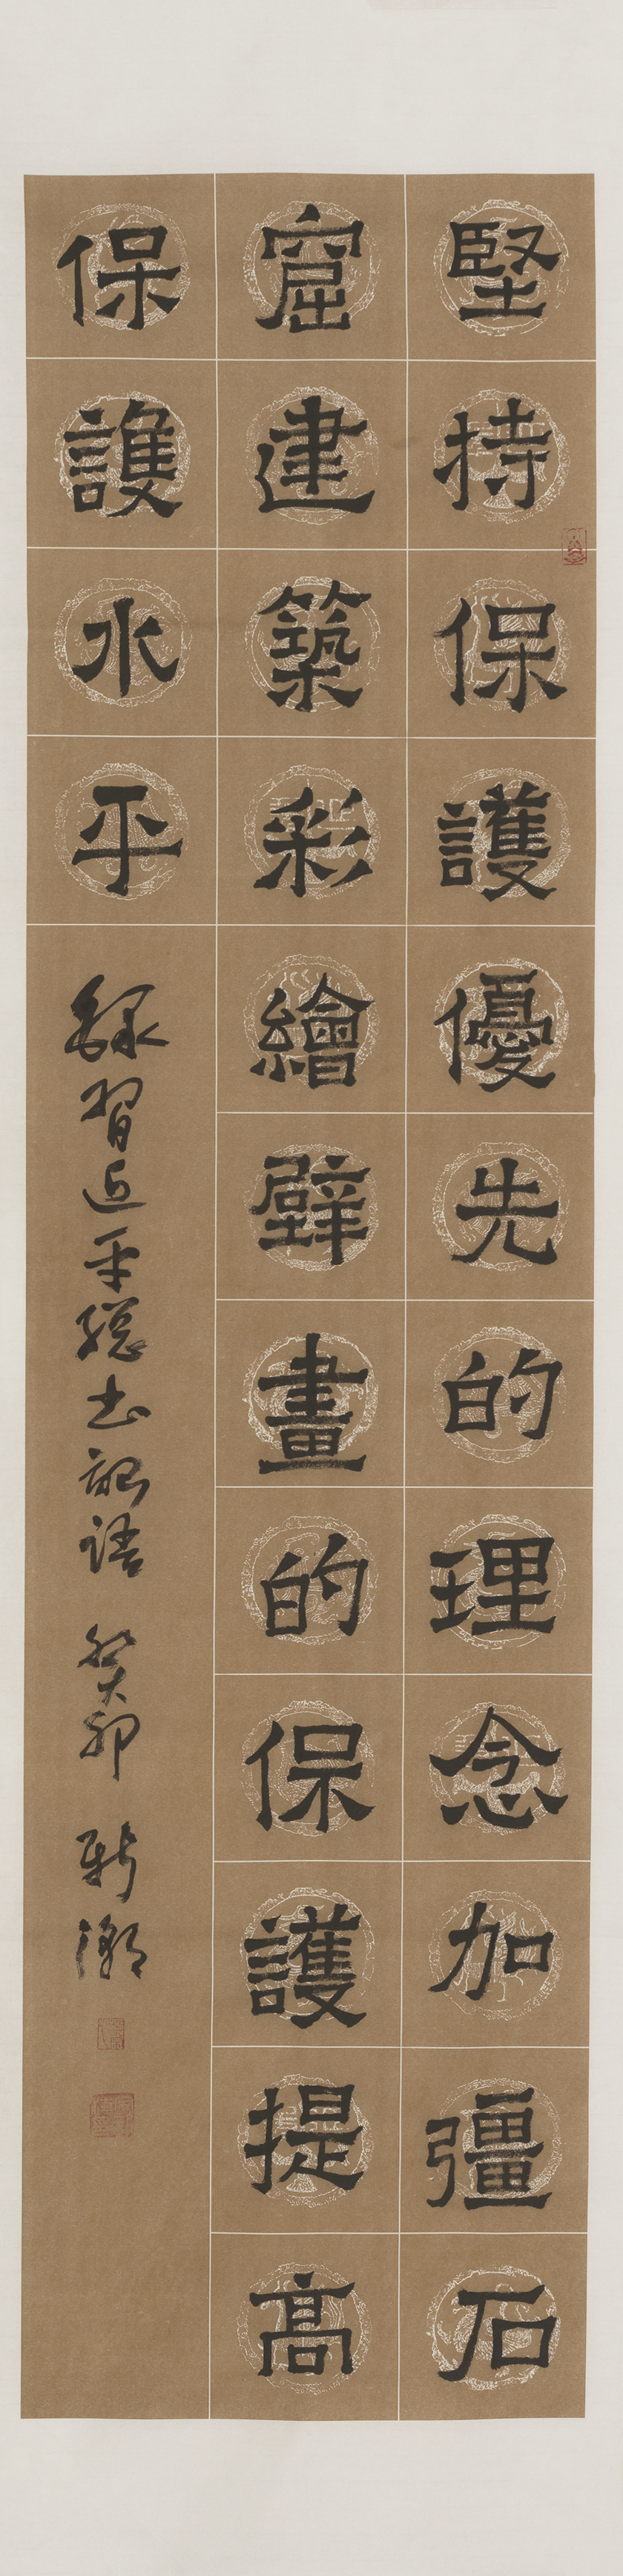 堅持保護優先的理念加彊石
窟建築彩繪壁畫的保護提高
保護水平
錄習近平總書記語 癸卯 新潮